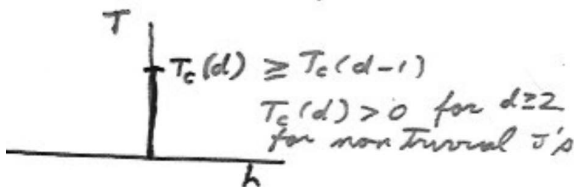 T
T_c(d) ≥ T_c(d-1)
T_c(d) > 0 for d≥2
for non Trivial J's
h